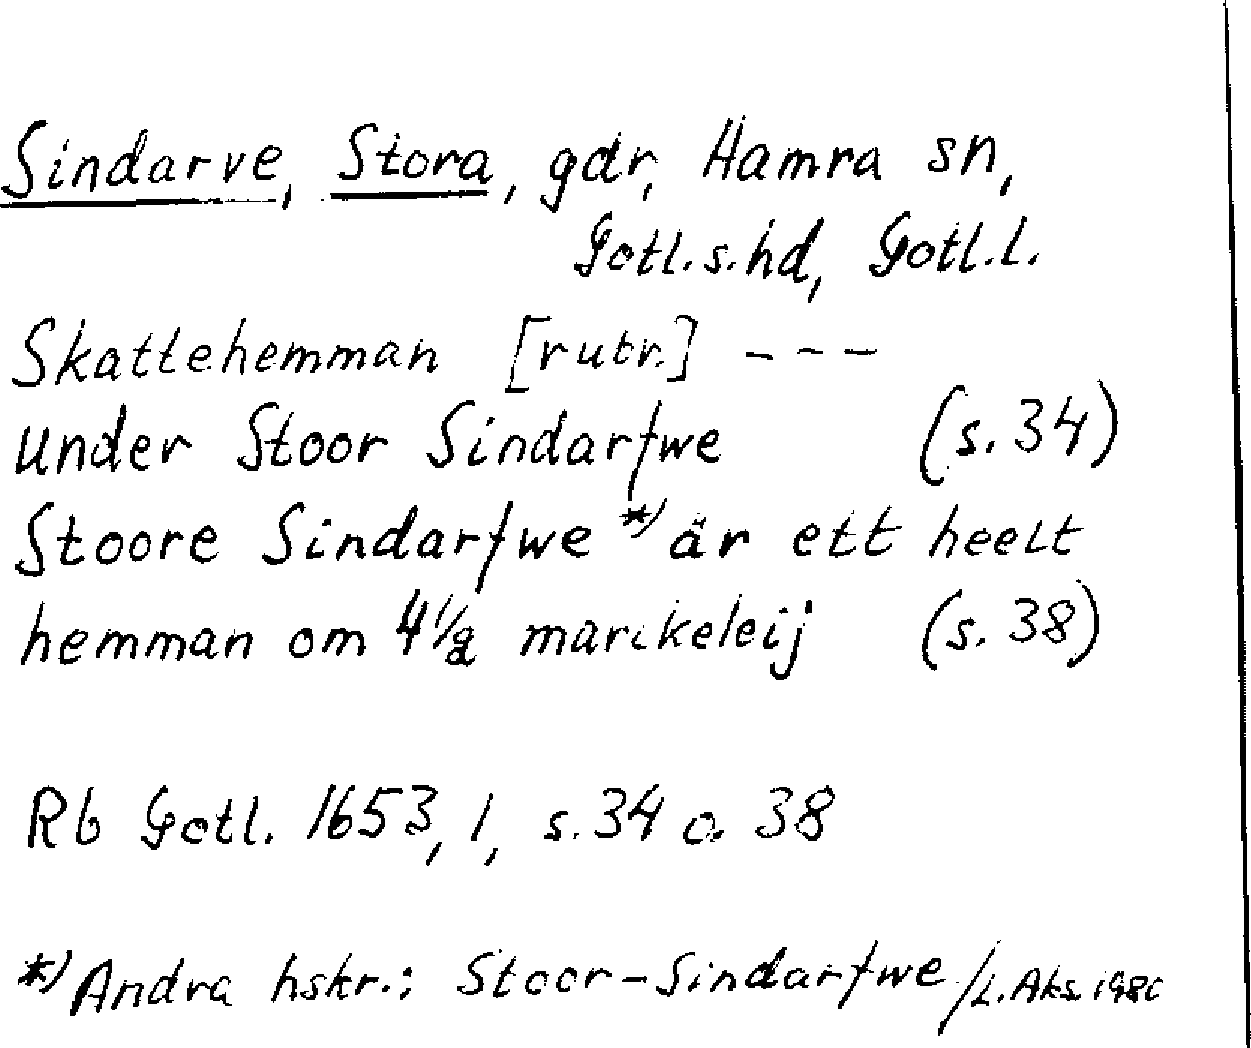 Sindarve, Stora, gdr, Hamra sn,
Gotl.s.hd, Gotl.l.
Skattehemman [rubr.] ---
Under Stoor Sindarfwe (s.34)
Stoore Sindarfwe *) är ett heelt
hemman om 4 1/2 marckeleij (s. 38)
Rb Gotl. 1653, 1, s. 34 o. 38
*) Andra hskr.: Stoor-Sindarfwe /L. Aks. 1980